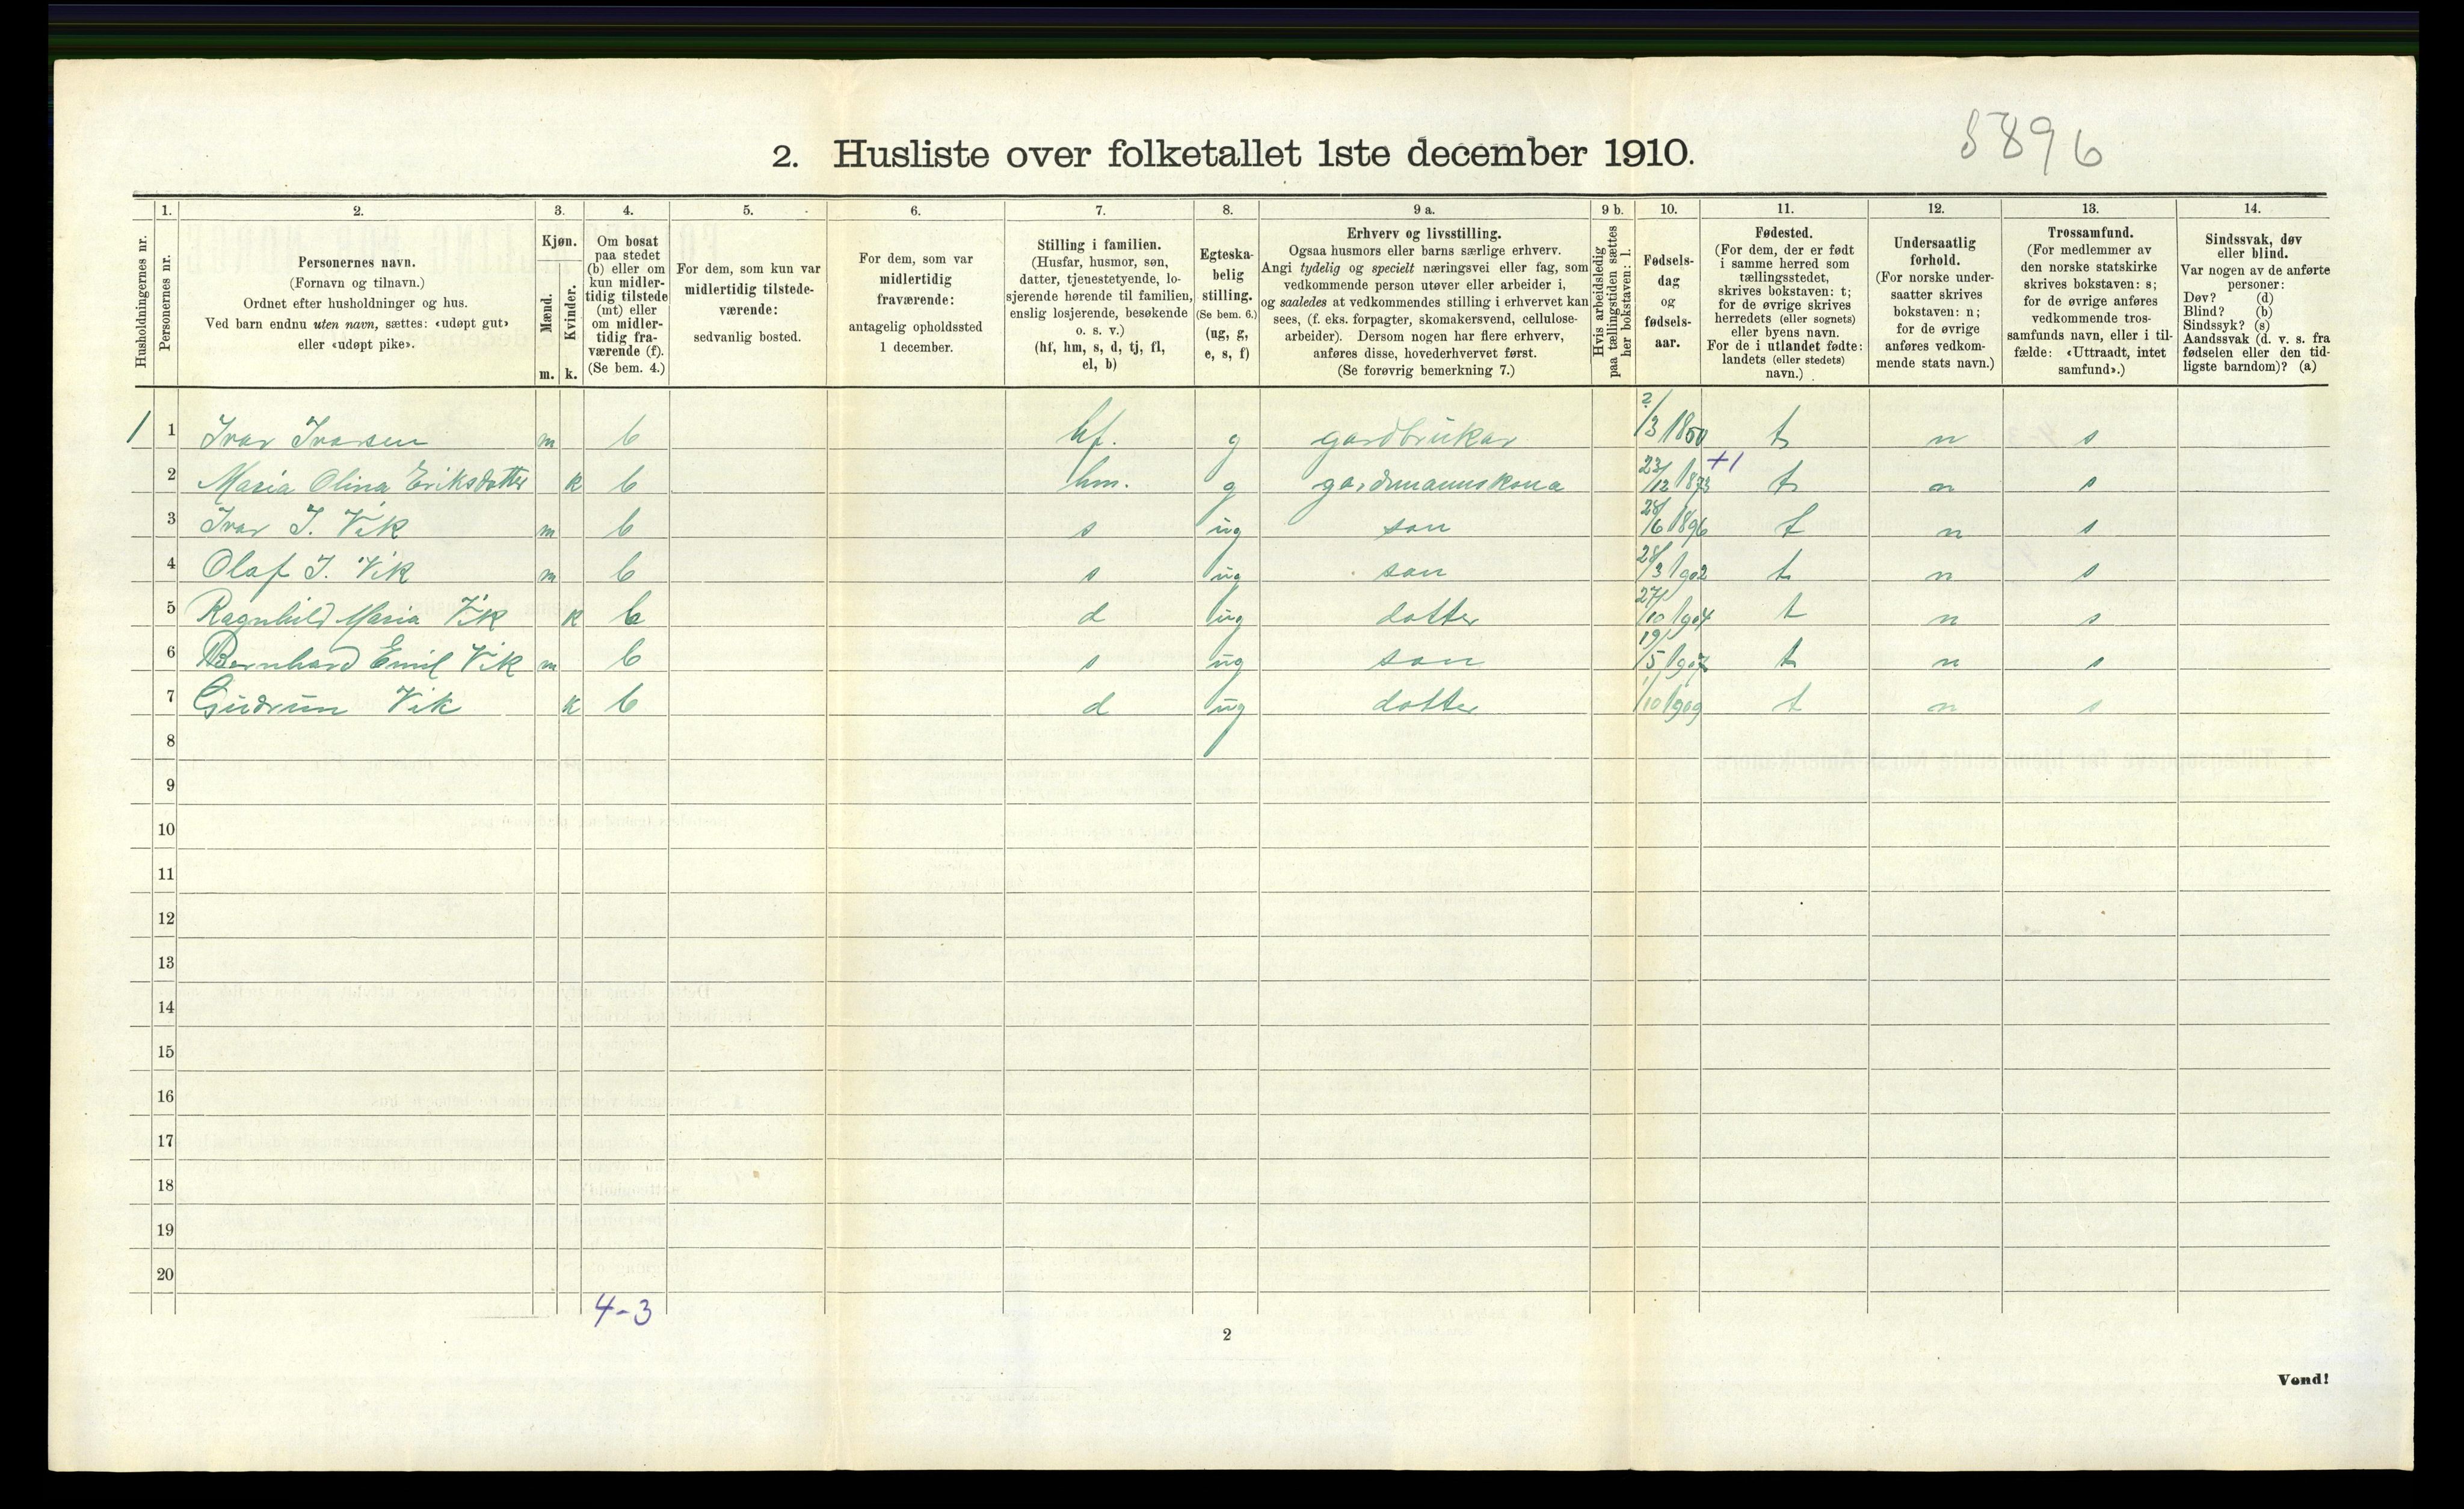 5896
2. Husliste over folketallet 1ste december 1910.
Husholdningernes nr.
1.
Personernes nr.
2.
Personernes navn.
(Fornavn og tilnavn.)
Ordnet efter husholdninger og hus.
Ved barn endnu uten navn, sættes: «udøpt gut»
eller «udøpt pike».
3.
Kjøn.
Mænd.
Kvinder.
m. k.
4.
Om bosat
paa stedet
(b) eller om
kun midler-
tidig tilstede
(mt) eller
om midler-
tidig fra-
værende (f).
(Se bem. 4.)
5.
For dem, som kun var
midlertidig tilstede-
værende:
sedvanlig bosted.
6.
For dem, som var
midlertidig
fraværende:
antagelig opholdssted
1 december.
7.
Stilling i familien.
(Husfar, husmor, søn,
datter, tjenestetyende, lo-
sjerende hørende til familien,
enslig losjerende, besøkende
o. s. v.)
(hf, hm, s, d, tj, fl,
el, b)
8.
Egteska-
belig
stilling.
(Se bem. 6.)
(ug, g,
e, s, f)
9 a.
Erhverv og livsstilling.
Ogsaa husmors eller barns særlige erhverv.
Angi tydelig og specielt næringsvei eller fag, som
vedkommende person utøver eller arbeider i,
og saaledes at vedkommendes stilling i erhvervet kan
sees, (f. eks. forpagter, skomakersvend, cellulose-
arbeider). Dersom nogen har flere erhverv,
anføres disse, hovederhvervet først.
(Se forøvrig bemerkning 7.)
9 b.
Hvis arbeidsledig
paa tællingstiden sættes
her bokstaven: l.
10.
Fødsels-
dag
og
fødsels-
aar.
11.
Fødested.
(For dem, der er født
i samme herred som
tællingsstedet,
skrives bokstaven: t;
for de øvrige skrives
herredets (eller sognets)
eller byens navn.
For de i utlandet fødte:
landets (eller stedets)
navn.)
12.
Undersaatlig
forhold.
(For norske under-
saatter skrives
bokstaven: n;
for de øvrige
anføres vedkom-
mende stats navn.)
13.
Trossamfund.
(For medlemmer av
den norske statskirke
skrives bokstaven: s;
for de øvrige anføres
vedkommende tros-
samfunds navn, eller i til-
fælde: «Uttraadt, intet
samfund».)
14.
Sindssvak, døv
eller blind.
Var nogen av de anførte
personer:
Døv? (d)
Blind? (b)
Sindssyk? (s)
Aandssvak (d. v. s. fra
fødselen eller den tid-
ligste barndom)? (a)
1 1 Ivar Ivarsen m b hf. g gardbrukar 2/3 1860 t n s
2 Maria Olina Eriksdotter k b hm. g gardmannskona 23/12 1873 +1 t n s
3 Ivar I. Vik m b s ug son 28/6 1896 t n s
4 Olaf I. Vik m b s ug son 28/3 1902 t n s
5 Ragnhild Maria Vik k b d ug dotter 27/10 1904 t n s
6 Bernhard Emil Vik m b s ug son 19/5 1907 t n s
7 Gudrun Vik k b d ug dotter 1/10 1909 t n s
8
9
10
11
12
13
14
15
16
17
18
19
20
4-3
2
Vend!